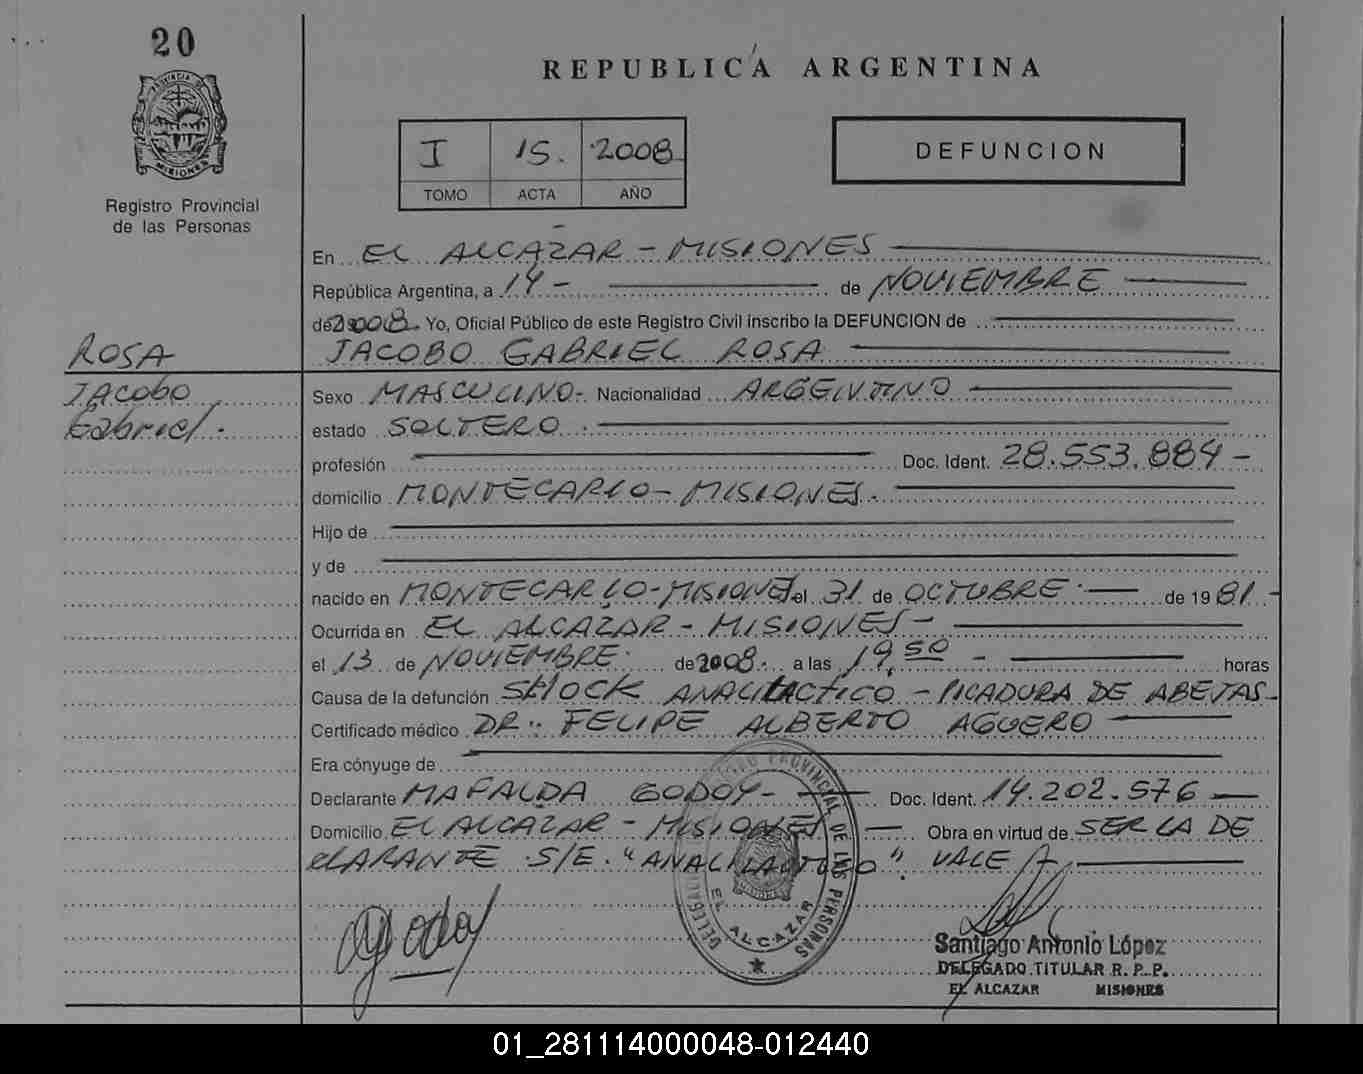 20
PROVINCIA DE
MISIONES
Registro Provincial
de las Personas
REPUBLICA ARGENTINA
I 15. 2008
TOMO ACTA AÑO
DEFUNCION
En EL ALCAZAR - MISIONES
República Argentina, a 14 - de NOVIEMBRE
de 2008. Yo, Oficial Público de este Registro Civil inscribo la DEFUNCION de
ROSA
JACOBO GABRIEL ROSA
Jacobo
Gabriel.
Sexo MASCULINO- Nacionalidad ARGENTINO
estado SOLTERO.
profesión Doc. Ident. 28.553.884 -
domicilio MONTECARLO - MISIONES.
Hijo de
y de
nacido en MONTECARLO - MISIONES el 31 de OCTUBRE de 1981 -
Ocurrida en EL ALCAZAR - MISIONES -
el 13 de NOVIEMBRE de 2008. a las 19,50 - horas
Causa de la defunción SHOCK ANACILACTICO - PICADURA DE ABEJAS -
Certificado médico DR: FELIPE ALBERTO AGUERO
Era cónyuge de
Declarante MAFALDA GODOY - Doc. Ident. 14.202.576
Domicilio EL ALCAZAR - MISIONES Obra en virtud de SER LA DE
CLARANTE S/E. "ANACILACTICO". VALE
DELEGACION REGISTRO PROVINCIAL DE LAS PERSONAS
EL ALCAZAR
Santiago Antonio López
DELEGADO TITULAR R. P. P.
EL ALCAZAR MISIONES
01_281114000048-012440